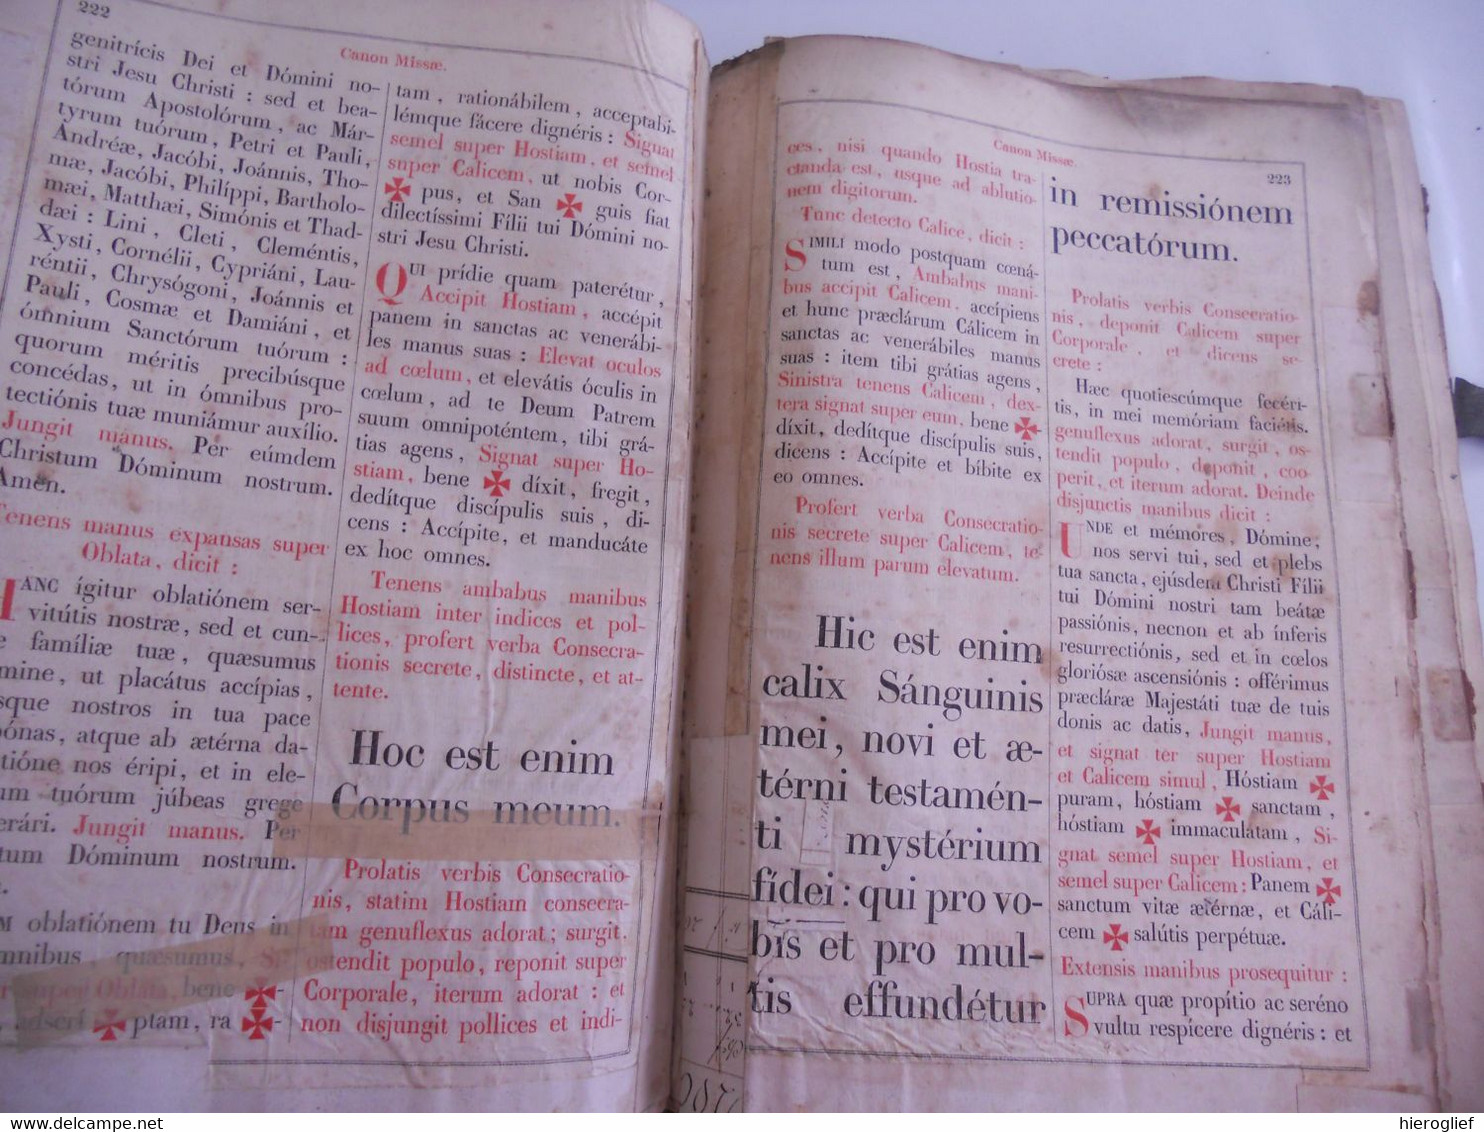 222
Canon Missæ.
genitrícis Dei et Dómini no-
stri Jesu Christi : sed et bea-
tórum Apostolórum, ac Már-
tyrum tuórum, Petri et Pauli,
Andréæ, Jacóbi, Joánnis, Tho-
mæ, Jacóbi, Philíppi, Bartholo-
mæi, Matthæi, Simónis et Thad-
dæi : Lini, Cleti, Cleméntis,
Xysti, Cornélii, Cypriáni, Lau-
réntii, Chrysógoni, Joánnis et
Pauli, Cosmæ et Damiáni, et
ómnium Sanctórum tuórum :
quorum méritis precibúsque
concédas, ut in ómnibus pro-
tectiónis tuæ muniámur auxílio.
Jungit manus. Per eúmdem
Christum Dóminum nostrum.
Amen.
Tenens manus expansas super
Oblata, dicit :
HANC ígitur oblatiónem ser-
vitútis nostræ, sed et cun-
famíliæ tuæ, quæsumus
mine, ut placátus accípias,
sque nostros in tua pace
pónas, atque ab ætérna da-
tióne nos éripi, et in ele-
um tuórum júbeas grege
erári. Jungit manus. Per
tum Dóminum nostrum.
M oblatiónem tu Deus in
mnibus, quæsumus, Si-
super Oblata, bene ✠-
adscrí ✠ ptam, ra ✠-
tam, rationábilem, acceptabi-
lémque fácere dignéris : Signat
semel super Hostiam, et semel
super Calicem, ut nobis Cor-
✠ pus, et San ✠ guis fiat
dilectíssimi Fílii tui Dómini no-
stri Jesu Christi.
QUI prídie quam paterétur,
Accipit Hostiam, accépit
panem in sanctas ac venerábi-
les manus suas : Elevat oculos
ad cœlum, et elevátis óculis in
cœlum, ad te Deum Patrem
suum omnipoténtem, tibi grá-
tias agens, Signat super Ho-
stiam, bene ✠ díxit, fregit,
dedítque discípulis suis, di-
cens : Accípite, et manducáte
ex hoc omnes.
Tenens ambabus manibus
Hostiam inter indices et pol-
lices, profert verba Consecra-
tionis secrete, distincte, et at-
tente.
Hoc est enim
Corpus meum.
Prolatis verbis Consecratio-
nis, statim Hostiam consecra-
tam genuflexus adorat; surgit,
ostendit populo, reponit super
Corporale, iterum adorat : et
non disjungit pollices et indi-
Canon Missæ.
223
ces, nisi quando Hostia tra-
ctanda est, usque ad ablutio-
nem digitorum.
Tunc detecto Calice, dicit :
SIMILI modo postquam cœná-
tum est, Ambabus mani-
bus accipit Calicem, accípiens
et hunc præclárum Cálicem in
sanctas ac venerábiles manus
suas : item tibi grátias agens,
Sinistra tenens Calicem, dex-
tera signat super eum, bene ✠-
díxit, dedítque discípulis suis,
dicens : Accípite et bíbite ex
eo omnes.
Profert verba Consecratio-
nis secrete super Calicem, te-
nens illum parum elevatum.
Hic est enim
calix Sánguinis
mei, novi et æ-
térni testamén-
ti mystérium
fídei : qui pro vo-
bis et pro mul-
tis effundétur
in remissiónem
peccatórum.
Prolatis verbis Consecratio-
nis, deponit Calicem super
Corporale, et dicens se-
crete :
Hæc quotiescúmque fecéri-
tis, in mei memóriam faciétis.
genuflexus adorat, surgit, os-
tendit populo, deponit, coo-
perit, et iterum adorat. Deinde
disjunctis manibus dicit :
UNDE et mémores, Dómine,
nos servi tui, sed et plebs
tua sancta, ejúsdem Christi Fílii
tui Dómini nostri tam beátæ
passiónis, necnon et ab ínferis
resurrectiónis, sed et in cœlos
gloriósæ ascensiónis : offérimus
præcláræ Majestáti tuæ de tuis
donis ac datis, Jungit manus,
et signat ter super Hostiam
et Calicem simul, Hóstiam ✠
puram, hóstiam ✠ sanctam,
hóstiam ✠ immaculatam, Si-
gnat semel super Hostiam, et
semel super Calicem : Panem ✠
sanctum vitæ ætérnæ, et Cáli-
cem ✠ salútis perpétuæ.
Extensis manibus prosequitur :
SUPRA quæ propítio ac seréno
vultu respícere dignéris : et
hieroglief